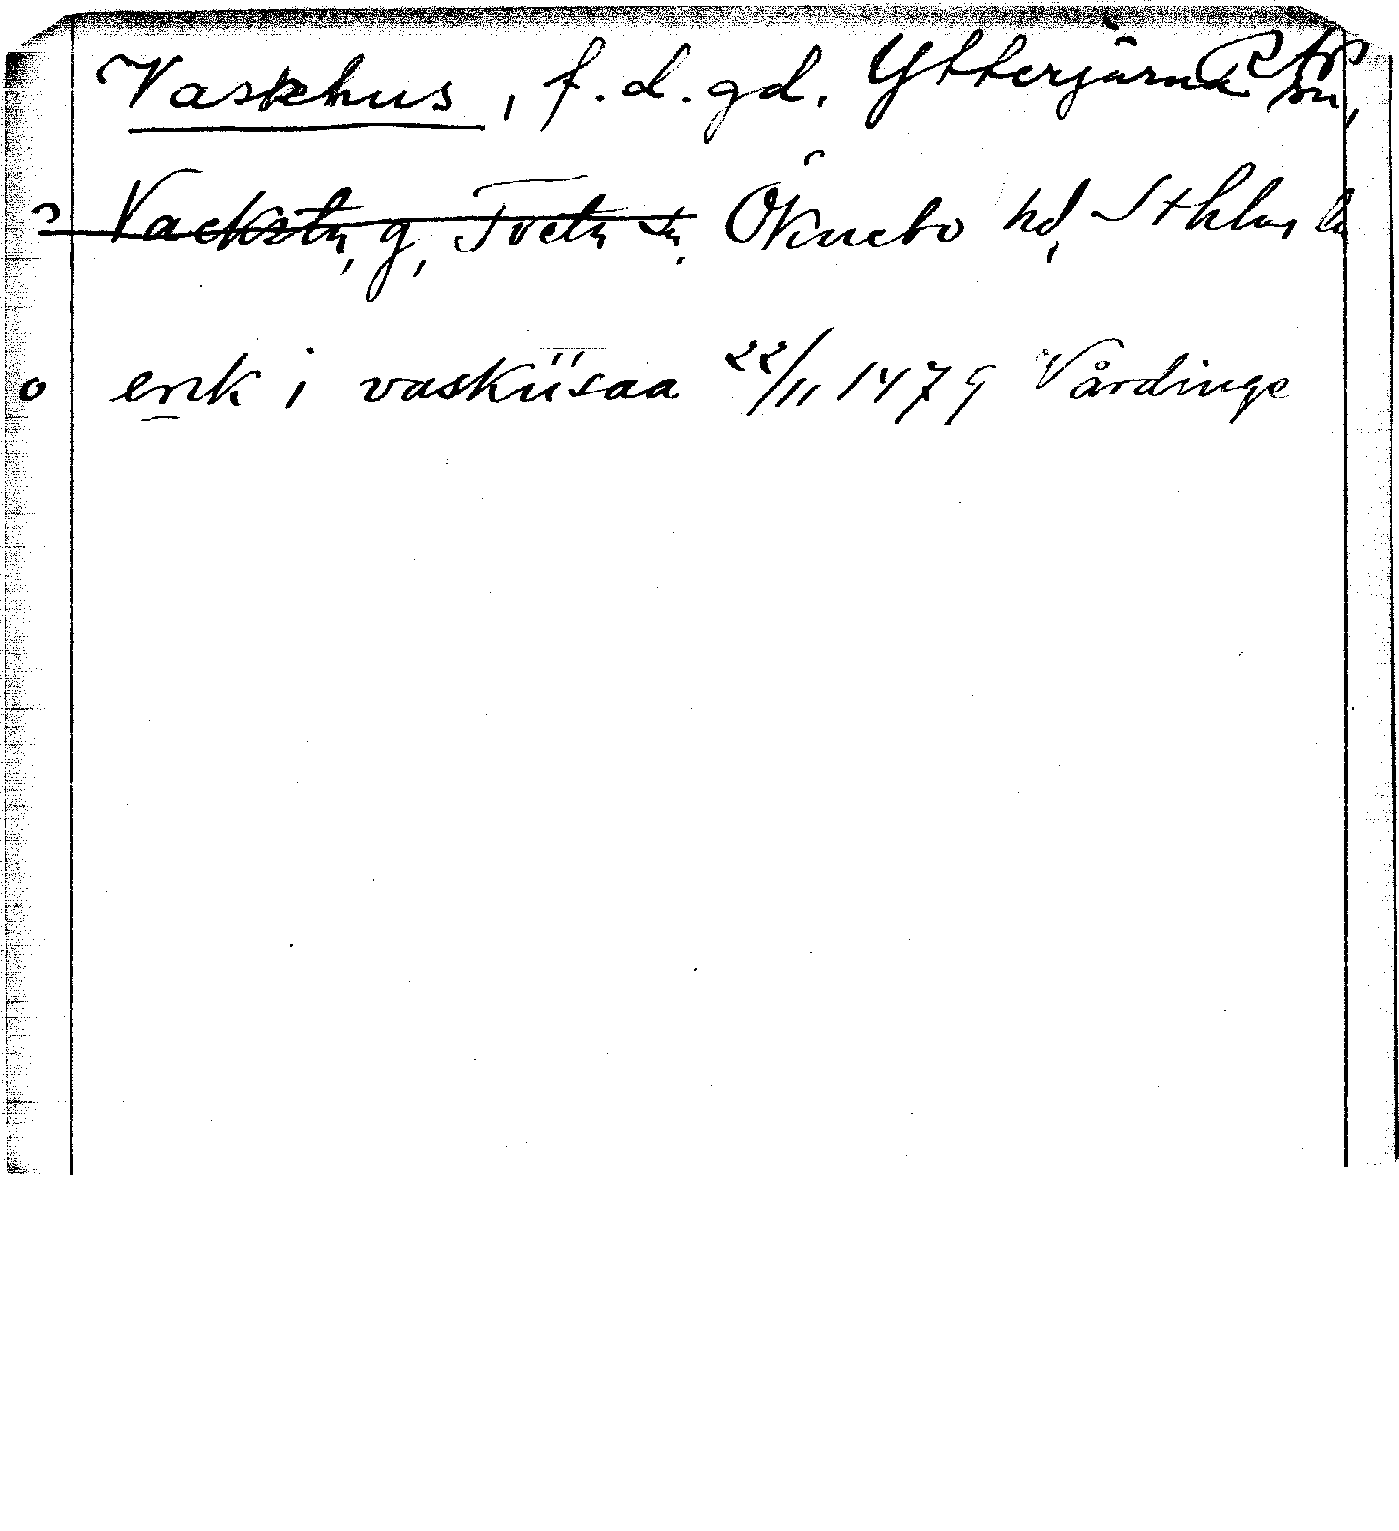 Vaskhus, f.d.gd. Ytterjärna sn,
? Vacksta, g, Tveta sn. Öknebo hd, Sthlms ln
o erik i vasküsaa 22/11 1479 Vårdinge